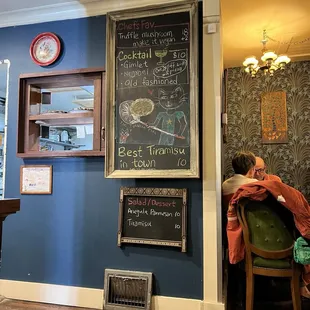 Chef's Fav
Truffle mushroom
make it vegan
Cocktail $10
Gimlet
Old fashioned
Best Tiramisu
in town 10
Salad/Dessert
Arugula Parmesan 10
Tiramisu 10